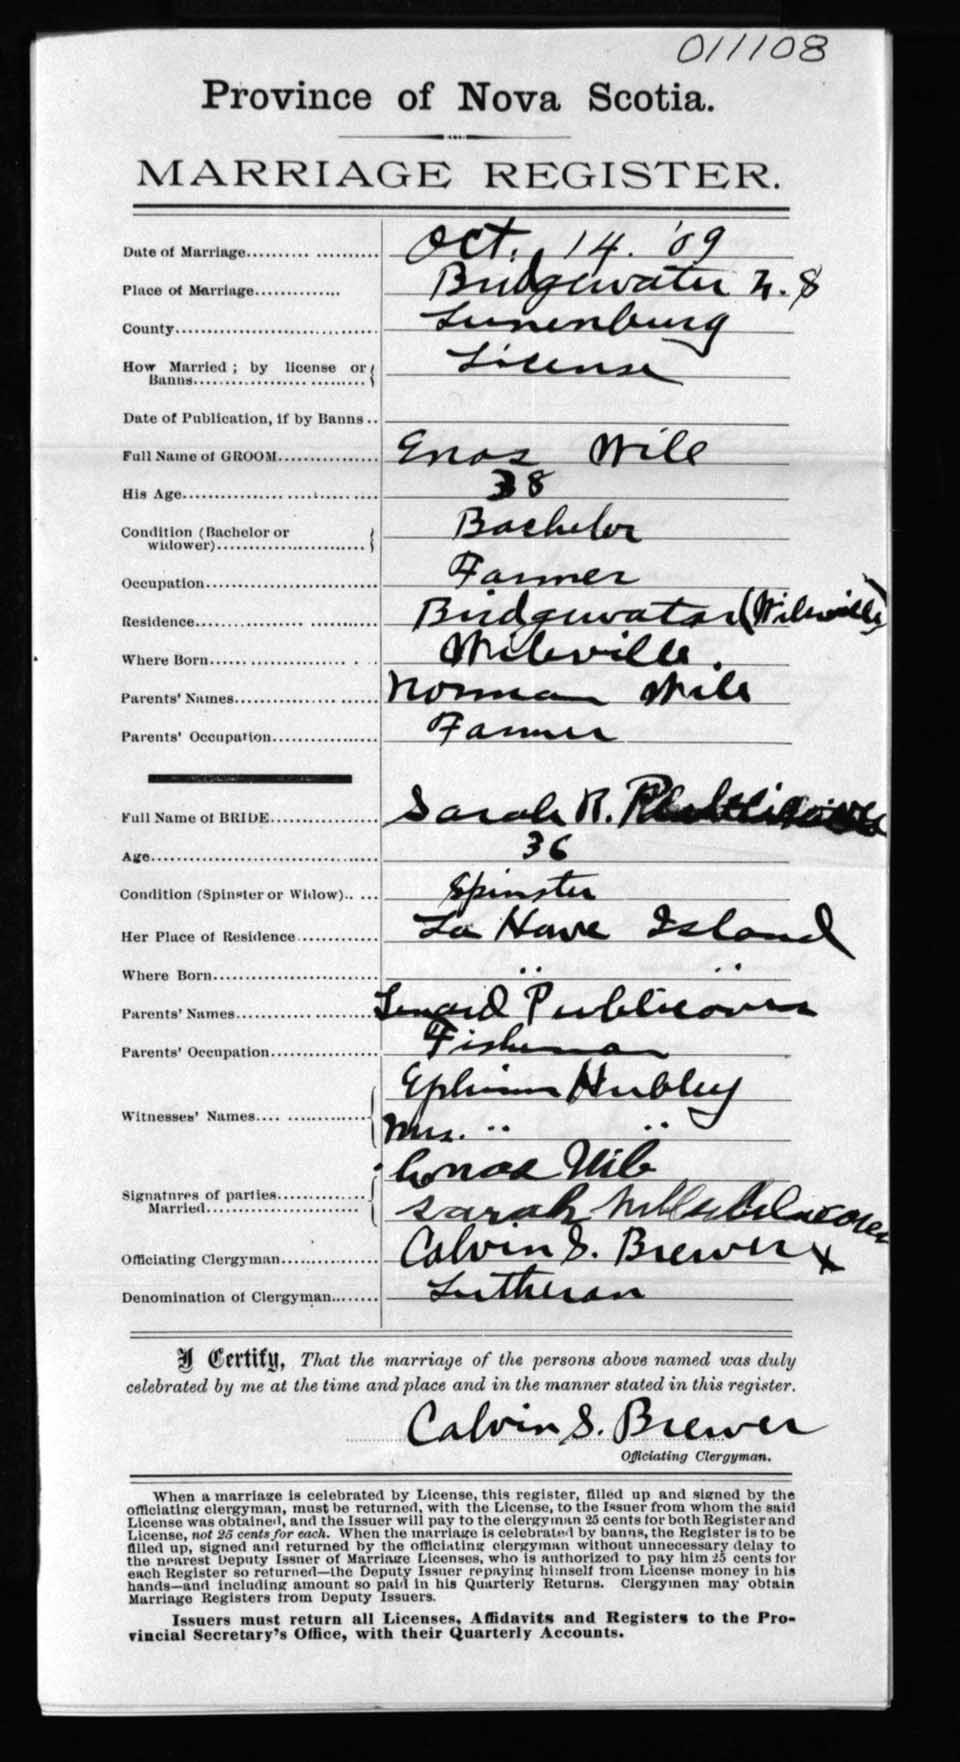 011108
Province of Nova Scotia.
MARRIAGE REGISTER.
Date of Marriage.......... Oct. 14. '09
Place of Marriage............. Bridgewater N. S
County............................... Lunenburg
How Married ; by license or
Banns.................. ......... License
Date of Publication, if by Banns ..
Full Name of GROOM............... Enos Wile
His Age............................ 38
Condition (Bachelor or
widower)....................... Bachelor
Occupation.......................... Farmer
Residence................ ........... Bridgewater (Wileville)
Where Born.................... . . Wileville.
Parents' Names..................... Norman Wile
Parents' Occupation................. Farmer
Full Name of BRIDE................. Sarah R.
Age.................................. 36
Condition (Spinster or Widow).. ... Spinster
Her Place of Residence............. La Have Island
Where Born......................... " "
Parents' Names............. ....... Lenard Publicover
Parents' Occupation................ Fisherman
Ephraim Hubley
Witnesses' Names.... ..............
Mrs. " "
Enos Wile
Signatures of parties..............
Married........................ Sarah
Officiating Clergyman............... Calvin S. Brewer x
Denomination of Clergyman........ Lutheran
I Certify, That the marriage of the persons above named was duly
celebrated by me at the time and place and in the manner stated in this register.
Calvin S. Brewer
Officiating Clergyman.
When a marriage is celebrated by License, this register, filled up and signed by the
officiating clergyman, must be returned, with the License, to the Issuer from whom the said
License was obtained, and the Issuer will pay to the clergyman 25 cents for both Register and
License, not 25 cents for each. When the marriage is celebrated by banns, the Register is to be
filled up, signed and returned by the officiating clergyman without unnecessary delay to
the nearest Deputy Issuer of Marriage Licenses, who is authorized to pay him 25 cents for
each Register so returned—the Deputy Issuer repaying himself from License money in his
hands—and including amount so paid in his Quarterly Returns. Clergymen may obtain
Marriage Registers from Deputy Issuers.
Issuers must return all Licenses, Affidavits and Registers to the Pro-
vincial Secretary's Office, with their Quarterly Accounts.